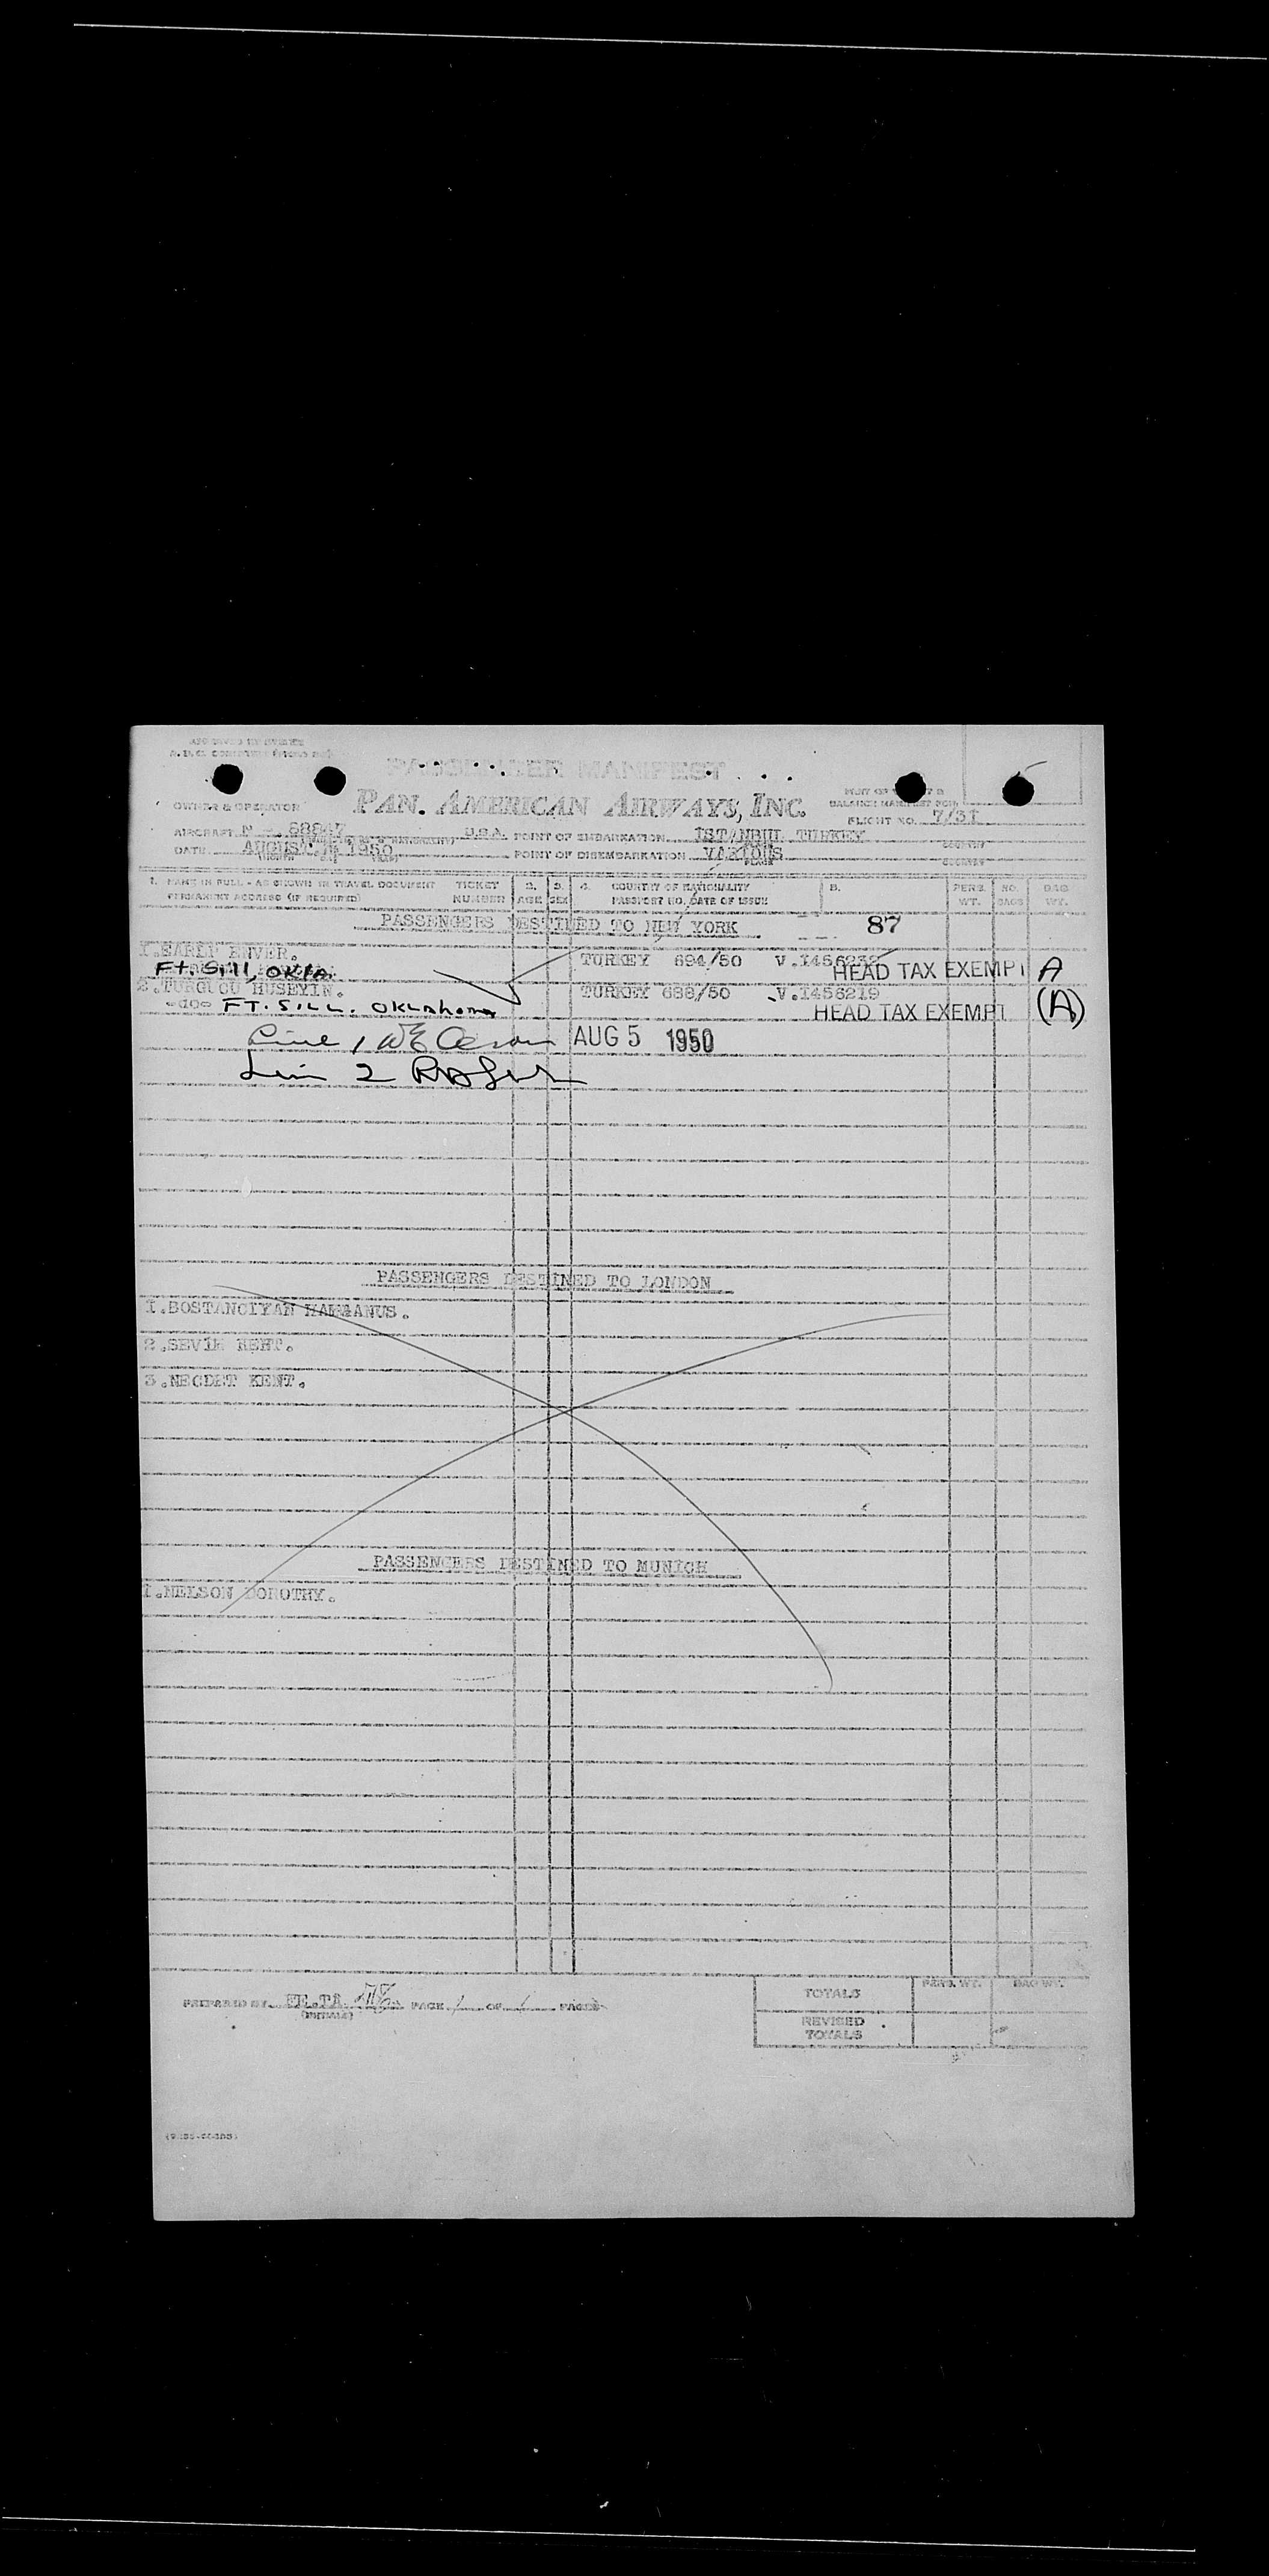 PASSENGER MANIFEST
OWNER & OPERATOR PAN AMERICAN AIRWAYS, INC.
FLIGHT NO. 7/31
AIRCRAFT N - 88847 U.S.A. POINT OF EMBARKATION ISTANBUL TURKEY
DATE AUGUST 1950 POINT OF DISEMBARKATION VARIOUS
1. NAME IN FULL - AS SHOWN IN TRAVEL DOCUMENT TICKET 2. 3. 4. COUNTRY OF NATIONALITY 5. PERS. NO. BAG
PERMANENT ADDRESS (IF REQUIRED) NUMBER AGE SEX PASSPORT NO. DATE OF ISSUE WT. BAGS WT.
PASSENGERS DESTINED TO NEW YORK 87
1. ENVER. TURKEY 694/50
Ft. Sill, OKla. HEAD TAX EXEMPT A
2. HUSEYIN. TURKEY 688/50 V.I456219
-do- FT. SILL. OKLAhoma HEAD TAX EXEMPT (A)
Line 1 AUG 5 1950
Line 2
PASSENGERS DESTINED TO LONDON
1.BOSTANCIYAN
2.SEVIM KENT.
3.NECDET KENT.
PASSENGERS DESTINED TO MUNICH
1.NELSON DOROTHY.
PREPARED BY PAGE 1 OF 1 PAGES
(INITIALS)
TOTALS PERS. WT. BAG WT.
REVISED
TOTALS